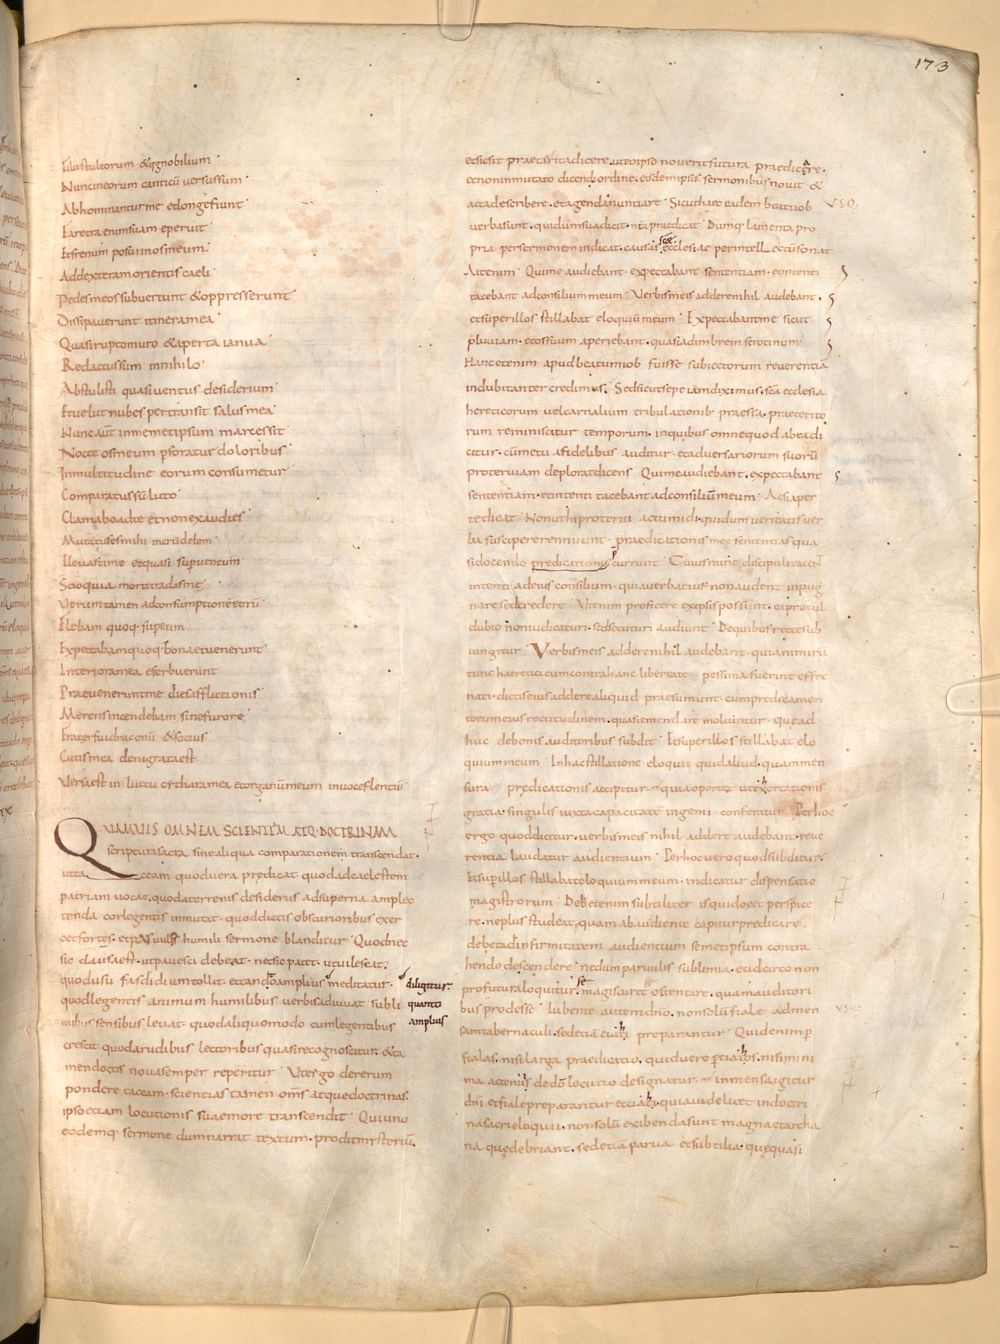 173
Filii stultorum & ignobilium
Nuncineorum canticū versussum
Abhominanturme & longefiunt
Farecraenimsuam eperuit
Etfrenum posuitinosmeum
Addexteramorientis caeli
Pedesmeossubvertunt & oppresserunt
Dissipaverunt itineramea
Quasiruptomuro & aperta ianua
Redactussum innihilo
Abstulisti quasiventus desiderium
Etvelutnubes pertransit salusmea
Nuncaut inmemetipsum marcessit
Nocte osmeum pforatur doloribus
Inmultitudine eorum consumetur
Comparatussū luto
Clamaboadte etnonexaudies
Mutatusesmihi incrudelem
Elevastime etquasi supventum
Scioquia mortitradisme
Veruntamen adconsumptionēeorū
Flebam quoq; superum
Expectabamquoq; bona etvenerunt
Interioramea eferbuerunt
Praeveneruntme diesafflictionis
Merensincedebam sinefurore
Fraterfuidraconū & socius
Cutismea denigrataest
Versaest in luctu cytharamea etorganūmeum invocēflentiū
QUAMVIS OMNEM SCIENTIAM ATQ; DOCTRINAM
scripturasacra sinealiqua comparationem transcendat.
utta ceam quodvera predicat quodadcaelestem
patriam vocat, quodaterrenis desideriis adsuperna amplec
tenda corlegentis inmutat. quoddictis obscurioribus exer
cetfortes. etparvulis humili sermone blanditur. Quodnec
sic clausaest. utpavesci debeat. necsic patet. utvilescat.
quodusu fastidiumtollit. ettanto amplius meditatur. diligitur.
quodlegentis animum humilibus verbisadiuvat subli quanto
mibus sensibus levat. quodaliquomodo cumlegentibus amplius
crescit quodarudibus lectoribus quasirecognoscitur. & ta
mendoctis novasemper reperitur. Utergo dererum
pondere taceam. scientias tamen omēs atquedoctrinas.
ipso etiam locutionis suaemore transcendit. Quiuno
eodemq; sermone dumnarrat textum. proditmysteriū.
etsicsit praeteritadicere. uteoipso noveritfutura praedicare.
etnoninmutato dicendi ordine. eisdemipsis sermonibusnovit &
actadescribere. etagendanuntiare. Sicuthaec eadem beatuiob
verbasunt. quidumsuadicit. nra praedicat. Dumq; lamenta pro
pria persermonem indicat. causas scae ecclesiae perintellectūsonat
Aitenim. Quime audiebant. expectabant sententiam. etintenti
tacebant adconsilium meum. Verbismeis adderenihil audebant.
etsuperillos stillabat eloquiū meum. Expectabantme sicut
pluviam. etossuum aperiebant. quasiadimbrem serotinum
Hancetenim apudbeatumiob fuisse subiectorum reverentiā
indubitanter credimus. Sedsicutsepe iamdiximus. scā ecclesia
hereticorum velcarnalium tribulationib; praessa. praeterito
rum reminiscitur temporum. inquibus omnequod abeadi
citur. cūmetu afidelibus auditur. etadversariorum suorū
proterviam deploratdicens Quimeaudiebant. expectabant
sententiam. etintenti tacebantadconsiliūmeum. Acsiaper
tedicat. Nonuthiprotervi actumidi. quidumveritatisver
ba suscipererennuunt. praedicationis meę sententias qua
sidocendo predicationę currunt. Cuiusnunc discipulitacet
intenti adeius consilium. quiaverbaeius nonaudent inpug
nare sedcredere. Utenim proficere exipsispossint. eaprocul
dubio n̄oniudicaturi. sedsecuturi audiunt. Dequibusrectesub
iungitur. Verbismeis adderenihil audebant. quianimirū
tunc haereticicumcontrahanc libertate pessimafuerint effre
nati. dictiseiusadderealiquid praesumunt. cumpredicamen
torumeius rectitudinem. quasiemendare moliuntur. Quęad
huc debonis auditoribus subdit. Etsuperillos stillabat elo
quiummeum. Inhacstillatione eloquii quidaliud. quammen
sura praedicationis accipitur. quiaoportet utexhortationis
gratia. singulis iuxtacapacitatē ingenii conferatur. Perhoc
ergo quoddicitur. verbismeis nihil addere audebant. reve
rentia laudatur audientium. Perhoc vero quodsubditur.
Etsuperillos stillabateloquiummeum. indicatur dispensatio
magistrorum. Debetenim subtiliter isquidocet perspice
re. neplus studeat. quam abaudiente capitur predicare.
debetadinfirmitatem audientium semetipsum contra
hendo descendere. nedumparvulis sublimia. etidcirco non
profuturaloquitur. se magiscuret ostentare. quamauditori
bus prodesse. Iubente autemdno. nonsolūfiale admen
samtabernaculi. sedetiā ciati preparantur. Quidenimp
fialas. nisi larga praedicatio. quidvero pciatos. nisimini
ma actenuis dedō locutio designatur. inmensaigitur
dni etfialepreparantur etciati. quiavidelicet indoctri
nasacrieloquii. nonsolū exibendasunt magnaetarcha
na quędebriant. sedetiā parva etsubtilia. quęquasi